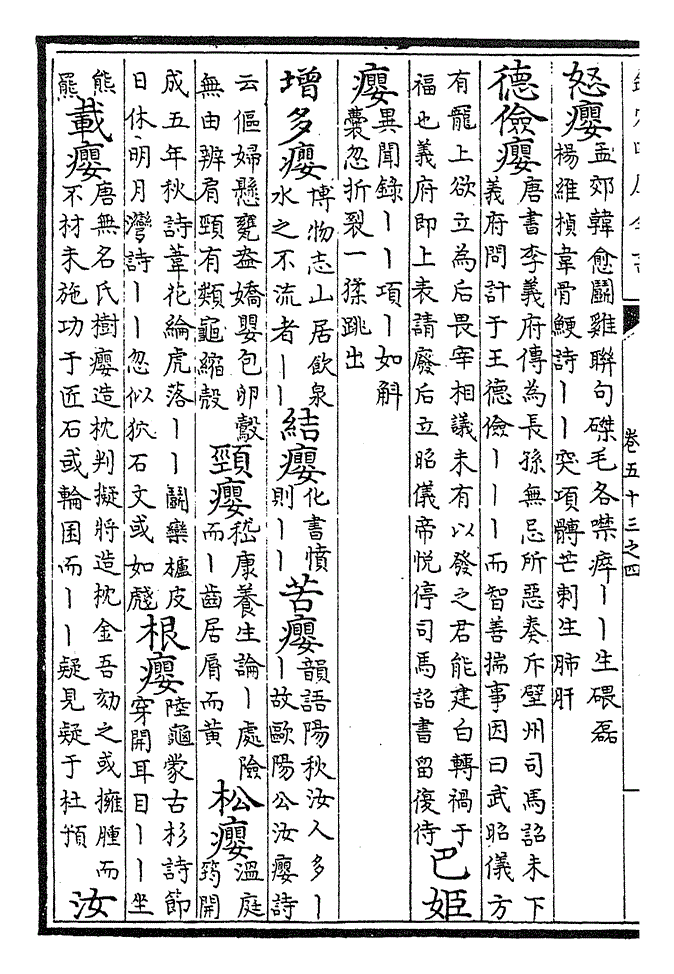 卷五十三之四
怒癭孟郊韓愈鬬雞聯句磔毛各噤瘁丨丨生碨磊
楊維楨韋骨鯁詩丨丨突項髆芒刺生肺肝
德儉癭唐書李義府傳為長孫無忌所惡奏斥壁州司馬詔未下
義府問計于王德儉丨丨丨而智善揣事因曰武昭儀方
有寵上欲立為后畏宰相議未有以發之君能建白轉禍于
福也義府即上表請廢后立昭儀帝悅停司馬詔書留復侍
巴姬
癭異聞錄丨丨項丨如斛
囊忽拆裂一猱跳出
增多癭博物志山居飲泉
水之不流者丨丨
結癭化書憤
則丨丨
苦癭韻語陽秋汝人多丨
丨故歐陽公汝癭詩
云傴婦懸甕盎嬌嬰包卵鷇
無由辨肩頸有類龜縮殼
頸癭嵇康養生論丨處險
而丨齒居脣而黃
松癭溫庭
筠開
成五年秋詩葦花綸虎落丨丨鬬欒櫨皮
日休明月灣詩丨丨忽似狖石文或如虥
根癭陸龜蒙古杉詩節
穿開耳目丨丨坐
熊
羆
載癭唐無名氏樹癭造枕判擬將造枕金吾劾之或擁腫而
不材未施功于匠石或輪囷而丨丨疑見疑于杜預
汝